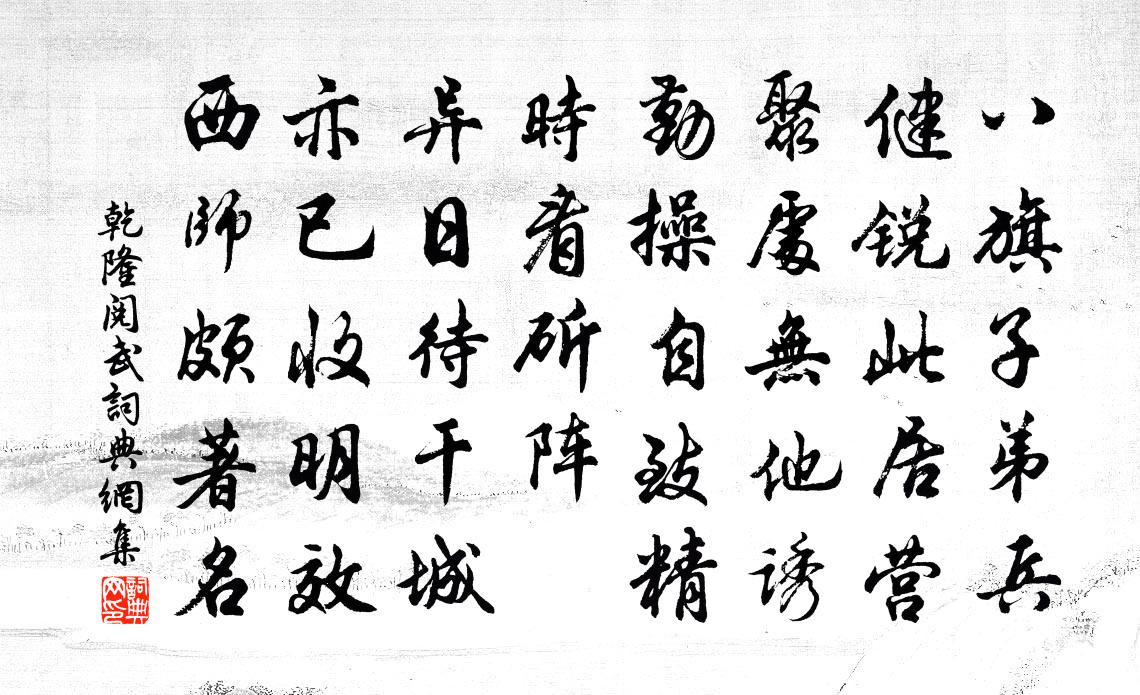 八旗子弟兵
健锐此居营
聚處無他诱
勤操自致精
時看斫阵
异日待干城
亦已收明效
西師颇著名
乾隆阅武詞典網集
詞典网印